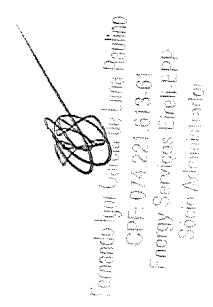 Fernando Igor Lima Paulino
CPF: 074.221.613-61
Energy Services Eireli-EPP
Sócio Administrador